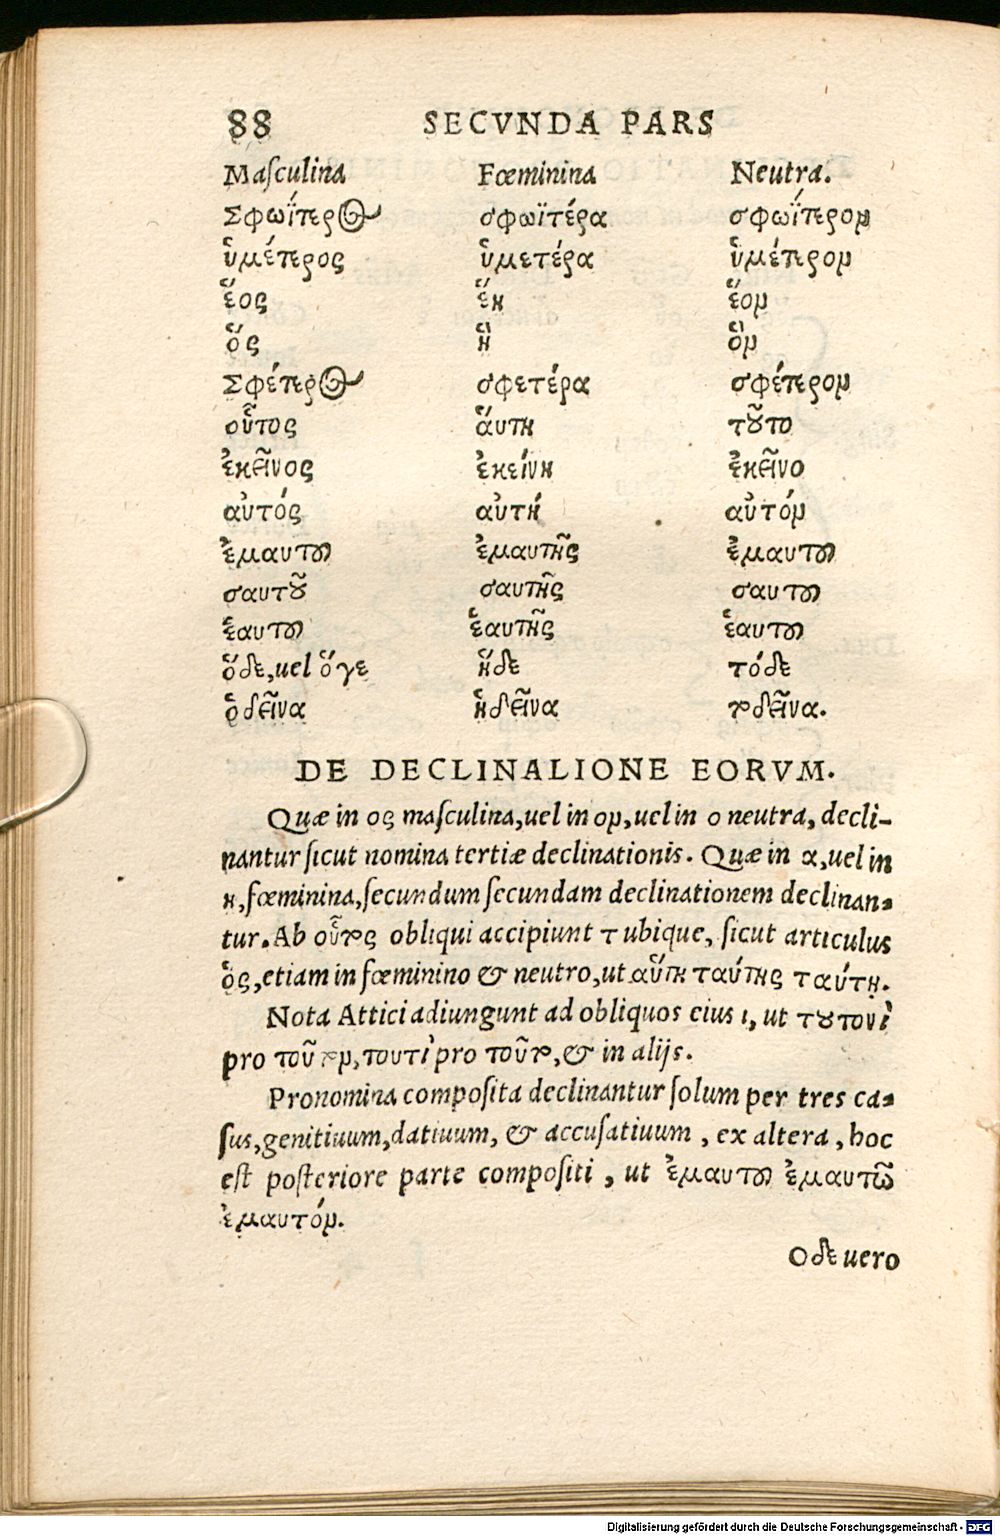 88 SECVNDA PARS
Maſculina Fœminina Neutra.
Σφωΐτερος σφωϊτέρα σφωΐτερον
ὑμέτερος ὑμετέρα ὑμέτερον
ἕος ἕη ἕον
ὅς ἥ ὃν
Σφέτερος σφετέρα σφέτερον
οὗτος ἅυτη τοῦτο
ἐκεῖνος ἐκείνη ἐκεῖνο
αὐτός αὐτή αὐτόν
ἐμαυτου ἐμαυτῆς ἐμαυτου
σαυτοῦ σαυτῆς σαυτου
ἑαυτου ἑαυτῆς ἑαυτου
ὅδε, uel ὅγε ἥδε τόδε
ὁ δεῖνα ἡ δεῖνα το δεῖνα.
DE DECLINALIONE EORVM.
Quæ in ος maſculina, uel in ον, uel in ο neutra, decli-
nantur ſicut nomina tertiæ declinationis. Quæ in α, uel in
η, fœminina, ſecundum ſecundam declinationem declinan-
tur. Ab οὗτος obliqui accipiunt τ ubique, ſicut articulus
ὃς, etiam in fœminino & neutro, ut αὕτη ταύτης ταύτῃ.
Nota Attici adiungunt ad obliquos eius ι, ut τουτονὶ
pro τοῦτον, τουτὶ pro τοῦτο, & in alijs.
Pronomina compoſita declinantur ſolum per tres ca-
ſus, genitiuum, datiuum, & accuſatiuum, ex altera, hoc
eſt poſteriore parte compoſiti, ut ἐμαυτου ἐμαυτῶ
ἐμαυτόν.
Ο δε uero
Digitalisierung gefördert durch die Deutsche Forschungsgemeinschaft - DFG